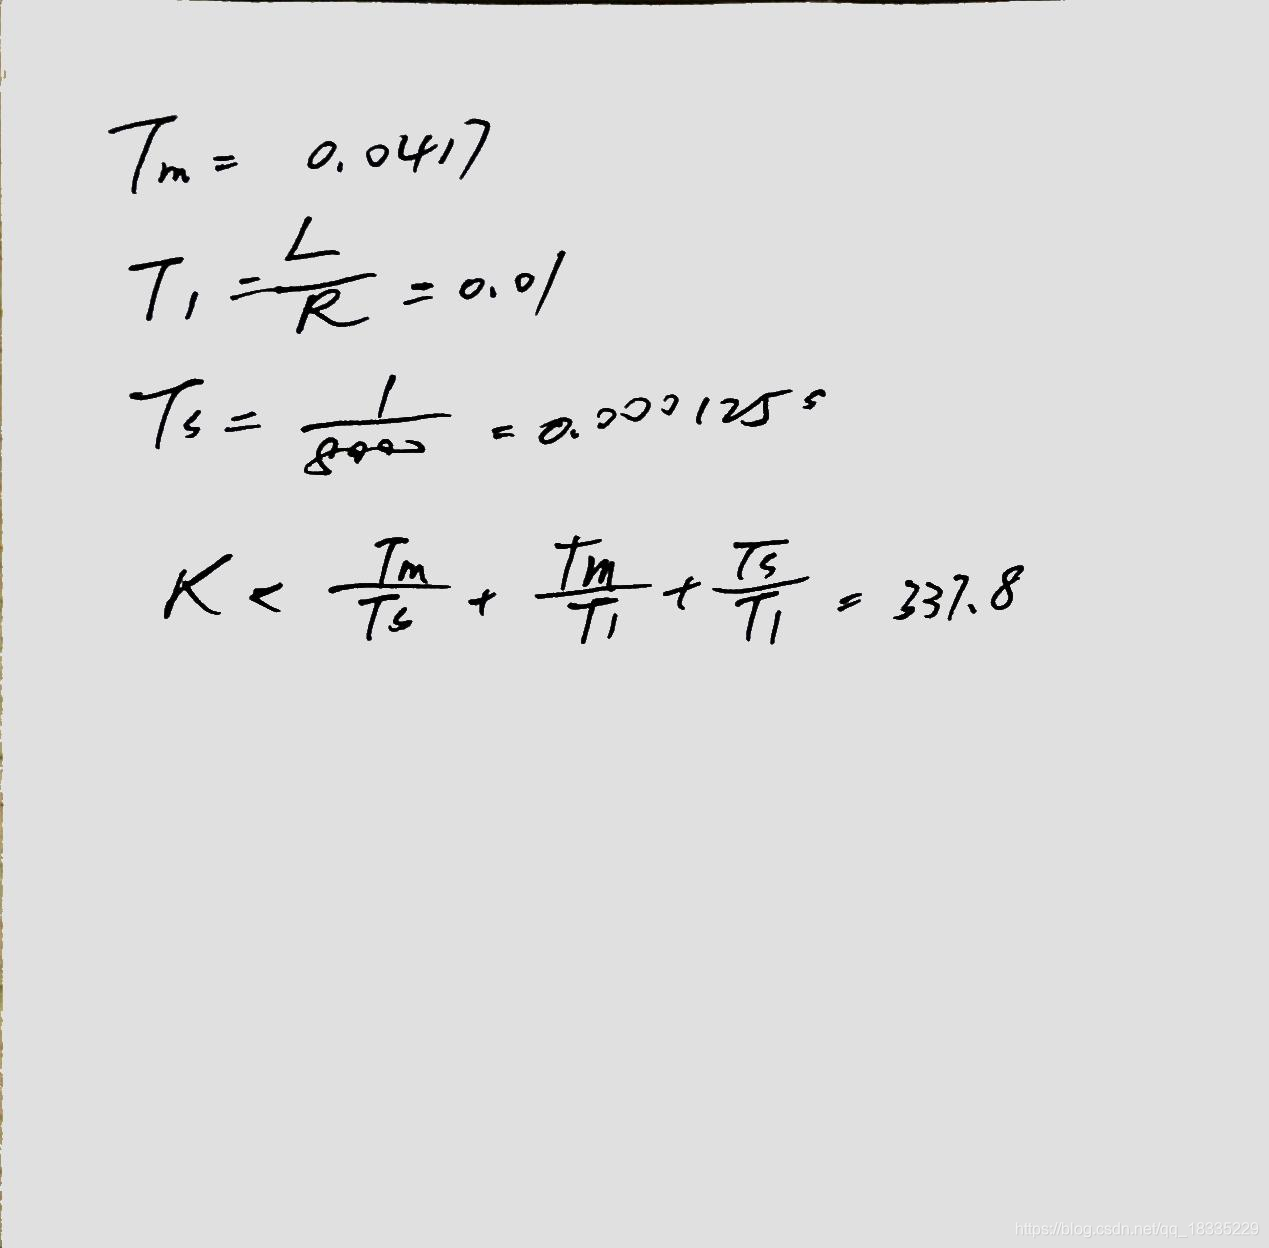 Tm = 0.0417
T1 = L/R = 0.01
Ts = 1/8000 = 0.000125 s
K < Tm/Ts + Tm/T1 + Ts/T1 = 337.8
https://blog.csdn.net/qq_18335229